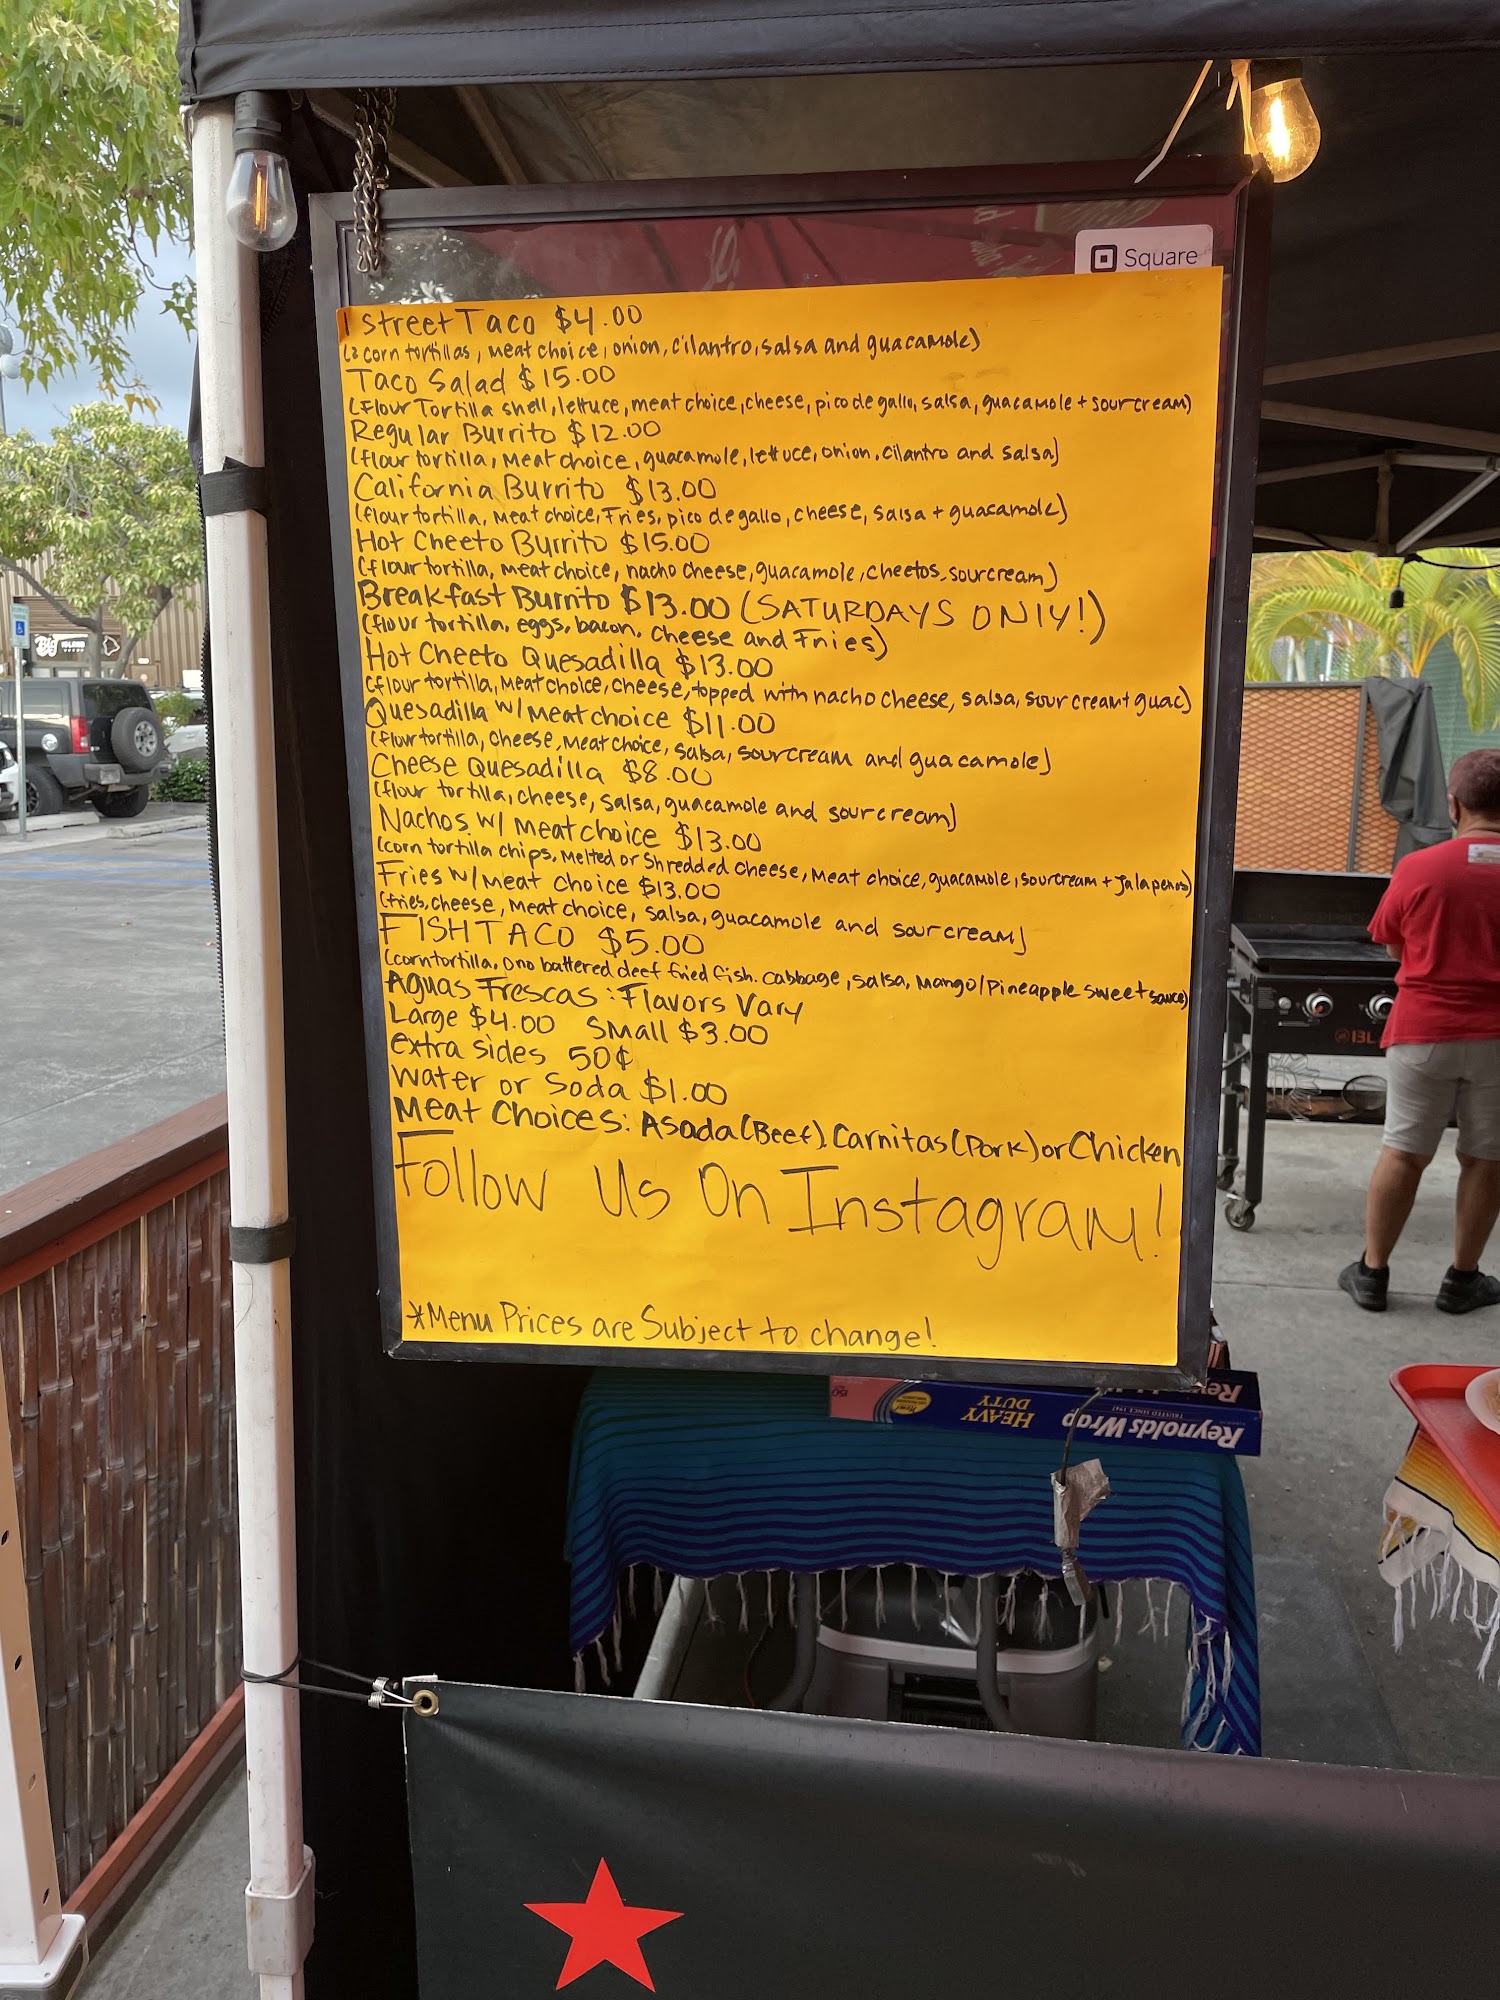 Square
1 Street Taco $4.00
(2 corn tortillas, meat choice, onion, cilantro, salsa and guacamole)
Taco Salad $15.00
(Flour Tortilla shell, lettuce, meat choice, cheese, pico de gallo, salsa, guacamole + sour cream)
Regular Burrito $12.00
(flour tortilla, meat choice, guacamole, lettuce, onion, cilantro and salsa)
California Burrito $13.00
(flour tortilla, meat choice, Fries, pico de gallo, cheese, salsa + guacamole)
Hot Cheeto Burrito $15.00
(flour tortilla, meat choice, nacho cheese, guacamole, cheetos, sour cream)
Breakfast Burrito $13.00 (SATURDAYS ONLY!)
(flour tortilla, eggs, bacon, cheese and Fries)
Hot Cheeto Quesadilla $13.00
(flour tortilla, Meat choice, cheese, topped with nacho cheese, salsa, sour cream + guac)
Quesadilla w/ meat choice $11.00
(flour tortilla, cheese, meat choice, salsa, sour cream and guacamole)
Cheese Quesadilla $8.00
(flour tortilla, cheese, salsa, guacamole and sour cream)
Nachos w/ meat choice $13.00
(corn tortilla chips, melted or shredded cheese, meat choice, guacamole, sour cream + jalapenos)
Fries w/ meat choice $13.00
(fries, cheese, meat choice, salsa, guacamole and sour cream)
FISH TACO $5.00
(corn tortilla, ono battered deef fried fish. cabbage, salsa, mango/pineapple sweet sauce)
Aguas Frescas: Flavors Vary
Large $4.00 Small $3.00
extra sides 50¢
water or Soda $1.00
Meat Choices: Asada (Beef), Carnitas (Pork) or Chicken
Follow Us On Instagram!
*Menu Prices are Subject to change!
Reynolds Wrap
HEAVY DUTY
Big ISLAND